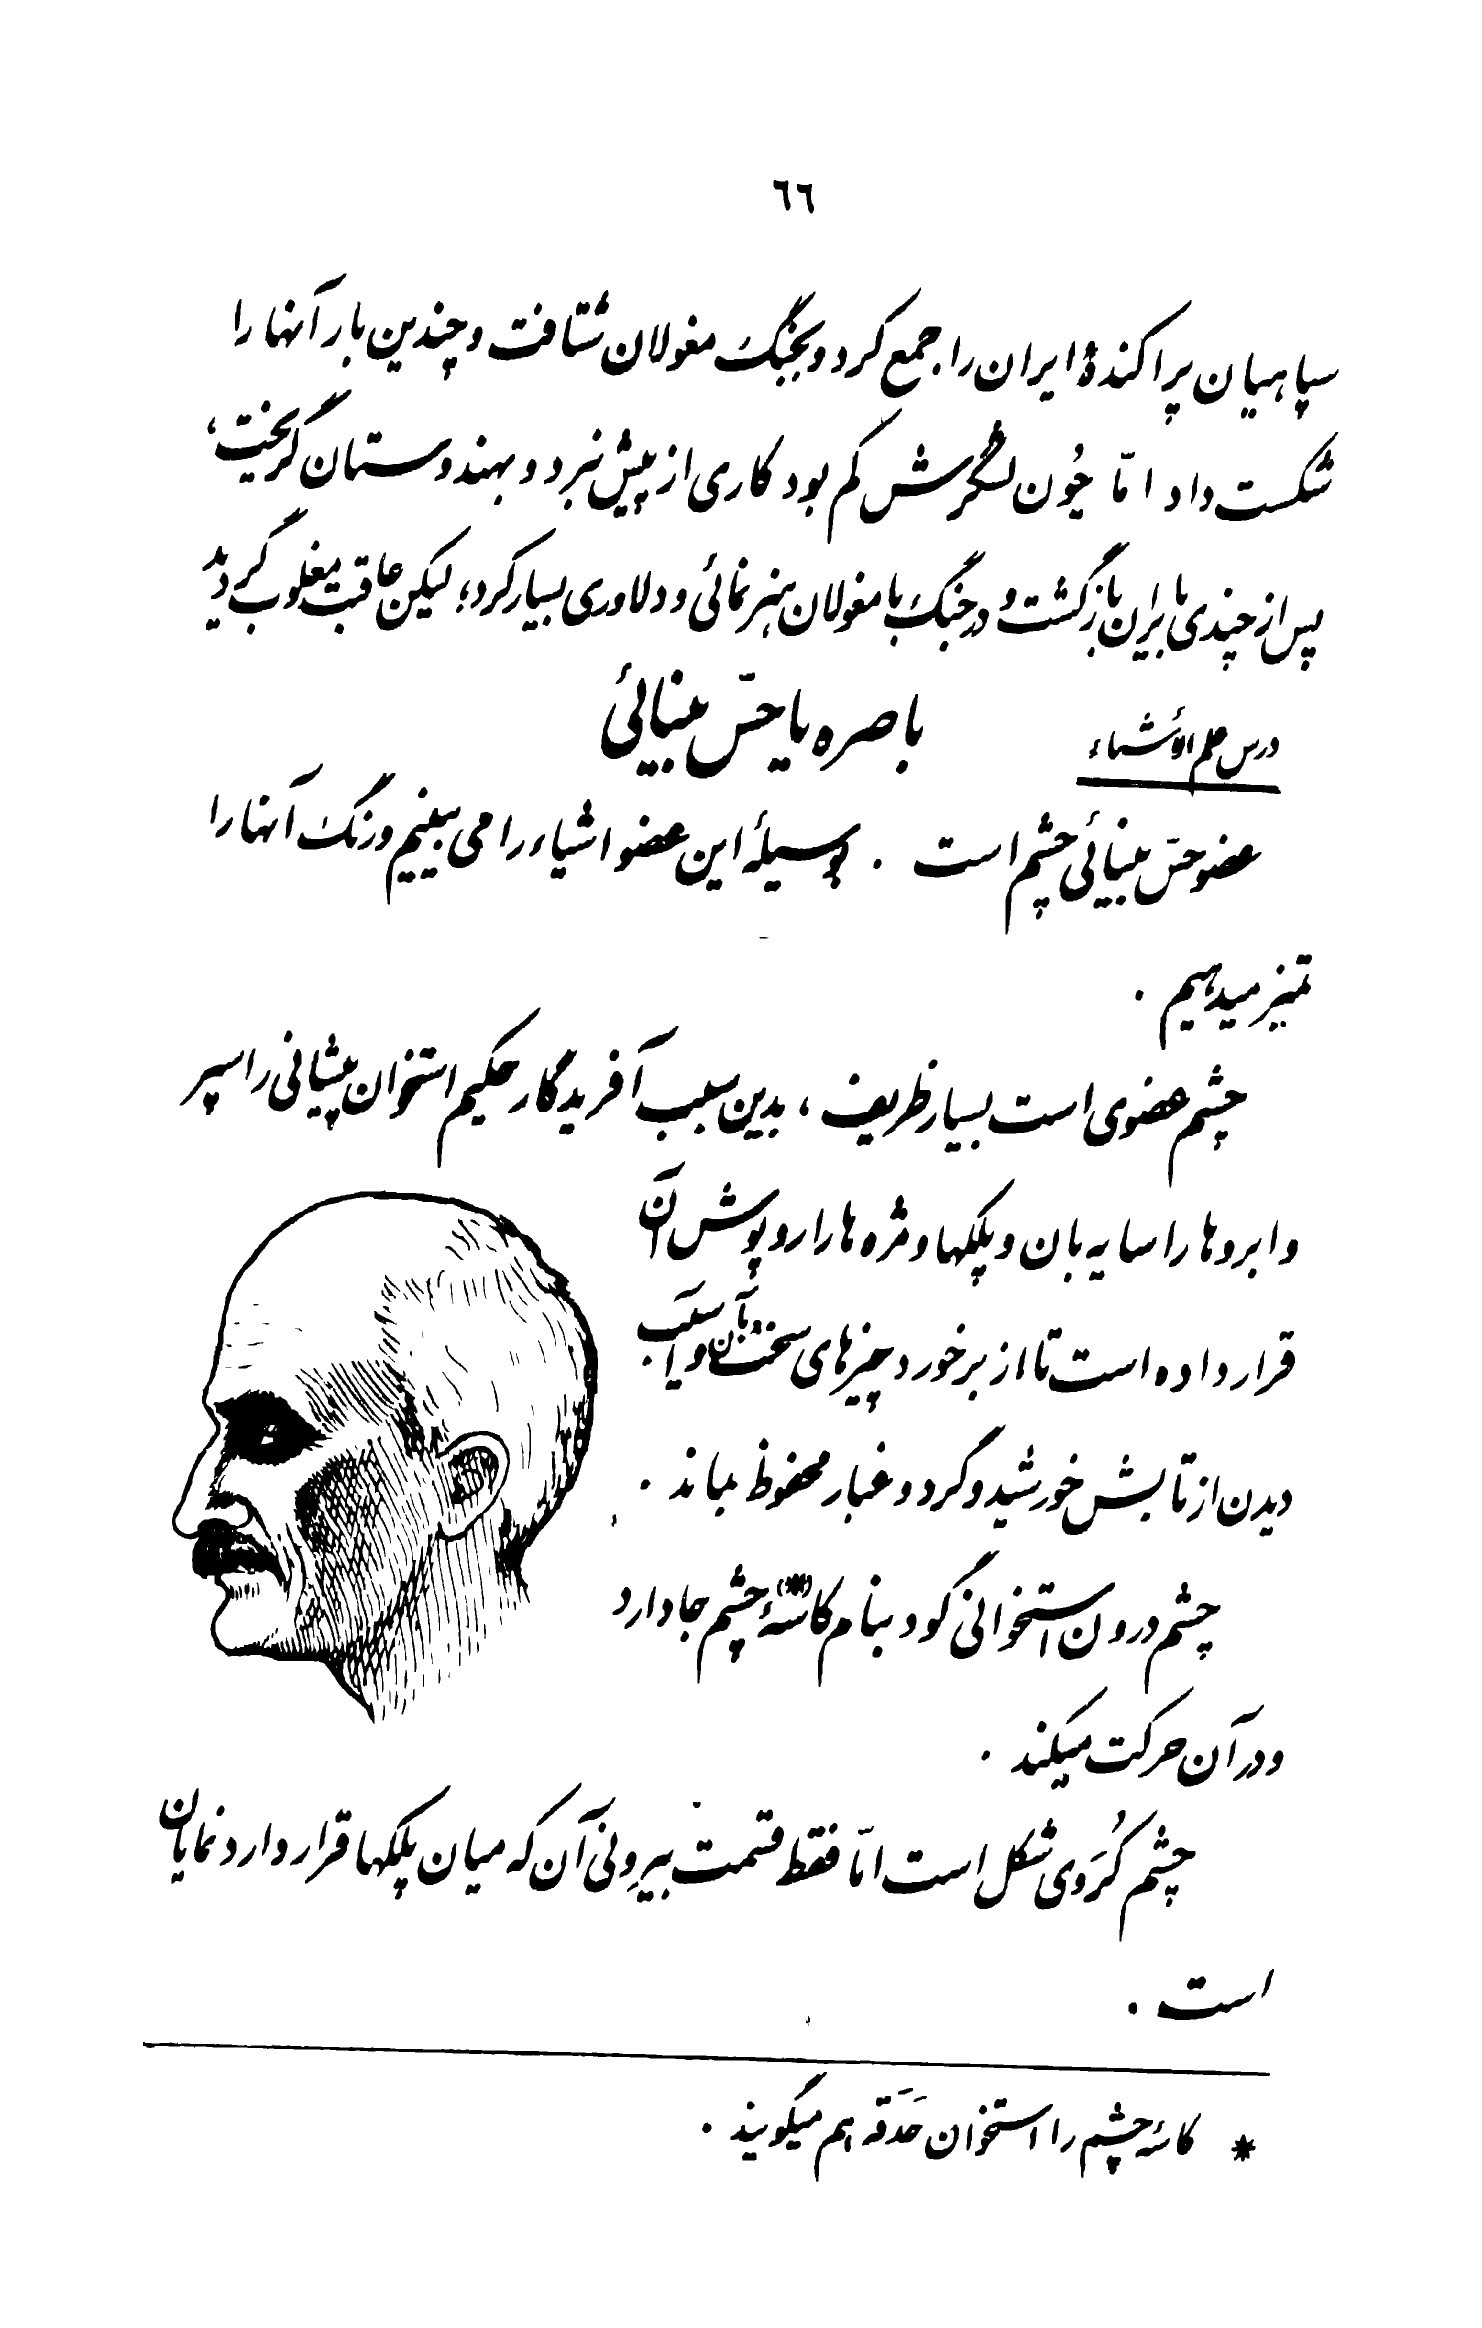 ٦٦
سپاهیان پراکندهٔ ایران را جمع کرد و بجنگ مغولان شتافت و چندین بار آنها را
شکست داد امّا چُون لشگرش کم بود کاری از پیش نبرد و بهندوستان گریخت،
پس از چندی بایران بازگشت و در جنگ با مغولان هنرنمائی و دلاوری بسیار کرد؛ لیکن عاقبت مغلوب گردید
درس علم الأشیاء
باصره یا حسّ بینائی
عضو حسّ بینائی چشم است . بوسیلهٔ این عضو اشیاء را می بینیم و رنگ آنها را
تمیز میدهیم .
چشم عضوی است بسیار ظریف ، بدین سبب آفریدگار حکیم استخوان پیشانی را سپر
و ابروها را سایه بان و پلکها و مژه ها را روپوش آن
قرار داده است تا از برخورد چیزهای سخت بآن و آسیب
دیدن از تابش خورشید و گرد و غبار محفوظ بماند .
چشم درون استخوانی گود بنام کاسهٔ (*) چشم جا دارد
و در آن حرکت میکند .
چشم کُرَوی شکل است امّا فقط قسمت بیرونی آن که میان پلکها قرار دارد نمایان
است .
* کاسهٔ چشم را استخوان حَدَقه هم میگویند .